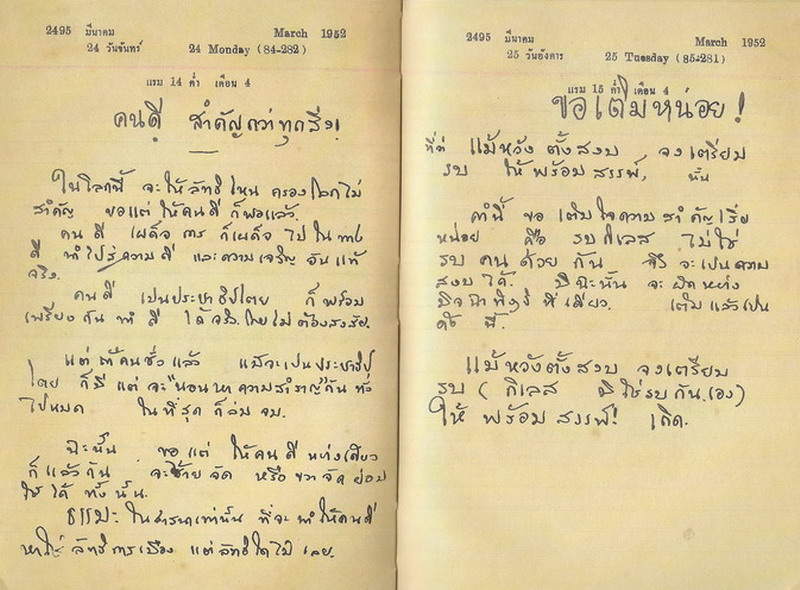 2495 มีนาคม March 1952
24 วันจันทร์ 24 Monday (84-282)
แรม 14 ค่ำ เดือน 4
คนดี สำคัญกว่าทุกสิ่ง!
ในโลกนี้ จะให้ลัทธิไหน ครองโลกไม่
สำคัญ ขอแต่ ให้คนดี ก็พอแล้ว.
คนดี เผด็จการ ก็เผด็จ ไปในทาง
ดี ทำไปสู่ความดี และความเจริญ อันแท้
จริง.
คนดี เป็นประชาธิปไตย ก็พร้อม
เพรียงกัน ทำดี ได้จริง ไม่ต้องสงสัย.
แต่ถ้าคนชั่ว แล้ว แม้จะเป็นประชาธิป
ไตย ก็มีแต่จะ "นอนหาความสำราญ" กันทั้ง
ไปหมด ในที่สุด ก็ล่มจม.
ฉะนั้น ขอแต่ ให้คนดี อย่างเดียว
ก็แล้วกัน จะซ้ายจัด หรือขวาจัด ย่อม
ใช้ได้ ทั้งนั้น.
ธรรมะ ในศาสนาเท่านั้น ที่จะทำให้คนดี
หาใช่ ลัทธิการเมือง แต่ลัทธิใดไม่ เลย.
2495 มีนาคม March 1952
25 วันอังคาร 25 Tuesday (85-281)
แรม 15 ค่ำ เดือน 4
ขอเติมหน่อย!
ที่ว่า แม้หวังตั้งสงบ จงเตรียม
รบ ให้พร้อมสรรพ์, นั้น
คำนี้ ขอเติมใจความสำคัญเสีย
หน่อย คือ รบกิเลส ไม่ใช่
รบคนด้วยกัน จึงจะเป็นความ
สงบได้. มิฉะนั้น จะผิดหมด
มิจฉาทิฏฐิ ทีเดียว. เติมแล้วเป็น
ดังนี้.
แม้หวังตั้งสงบ จงเตรียม
รบ (กิเลส มิใช่รบกันเอง)
ให้พร้อมสรรพ์! เถิด.